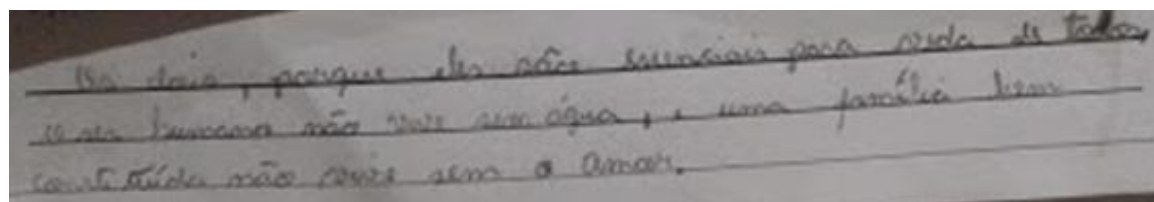 Os dois, porque eles são essenciais para vida de todos,
o ser humano não vive sem água, e uma família bem
constituída não vive sem o amor.